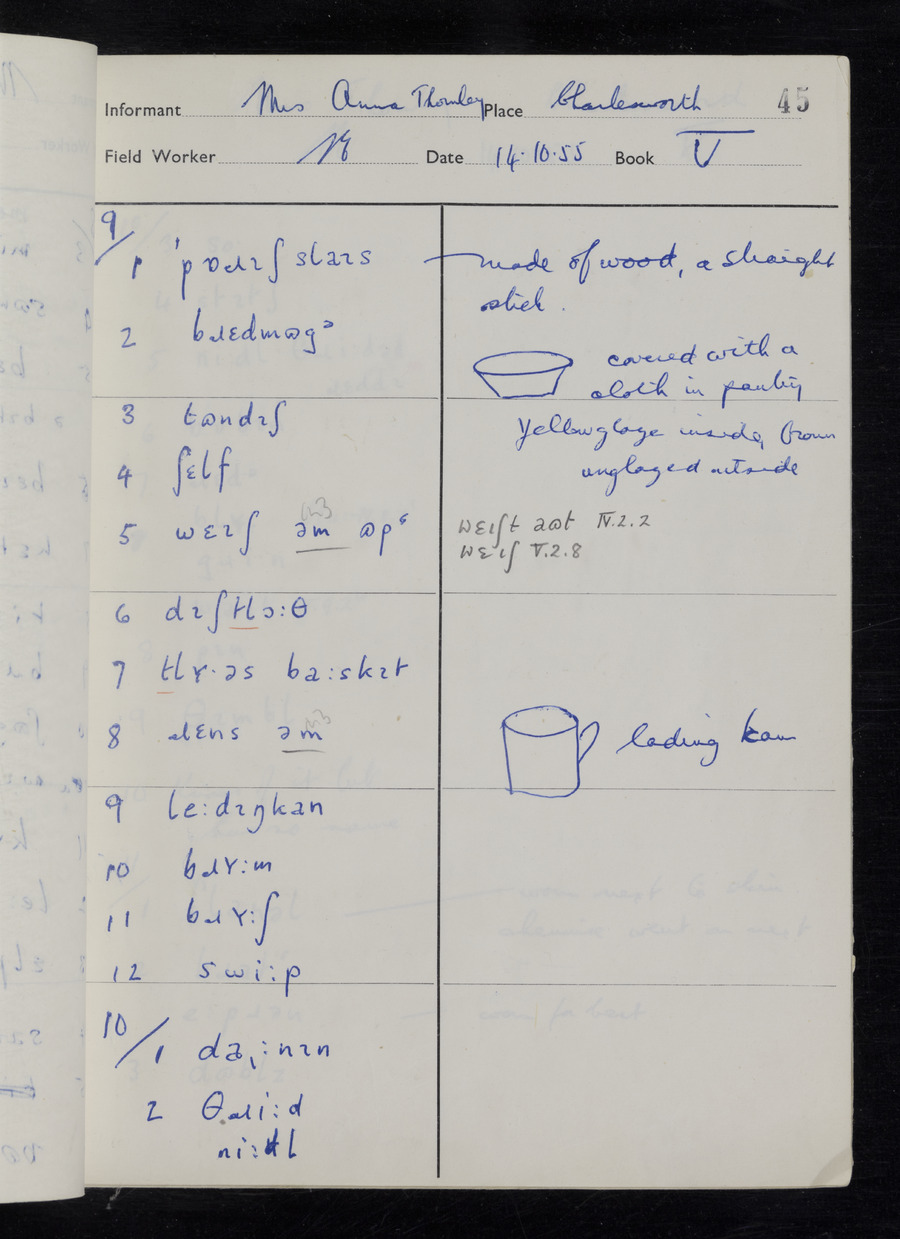 Informant Mrs Anna Thornley Place Charlesworth 45
Field Worker Date 14.10.55 Book V
9/
1 ˈpɒɹɪʃ slaɪs — made of wood, a straight
stick.
2 bɹɛdmɷgᵊ
covered with a
cloth in pantry
3 tɷndɪʃ
Yellow glaze inside, brown
4 ʃɛlf
unglazed outside
5 wɛɪʃ əm ɷpʻ
wɛɪʃt aɷt IV.2.2
wɛɪʃ V.2.8
6 dɪʃtlɔ:θ
7 tlɤ·əs ba:skɪt
8 ɹɛns əm
lading kan
9 le:dɪŋkan
10 bɹɤ:m
11 bɹɤ:ʃ
12 swi:p
10/
1 da:nɪn
2 θɹi:d
ni:dl